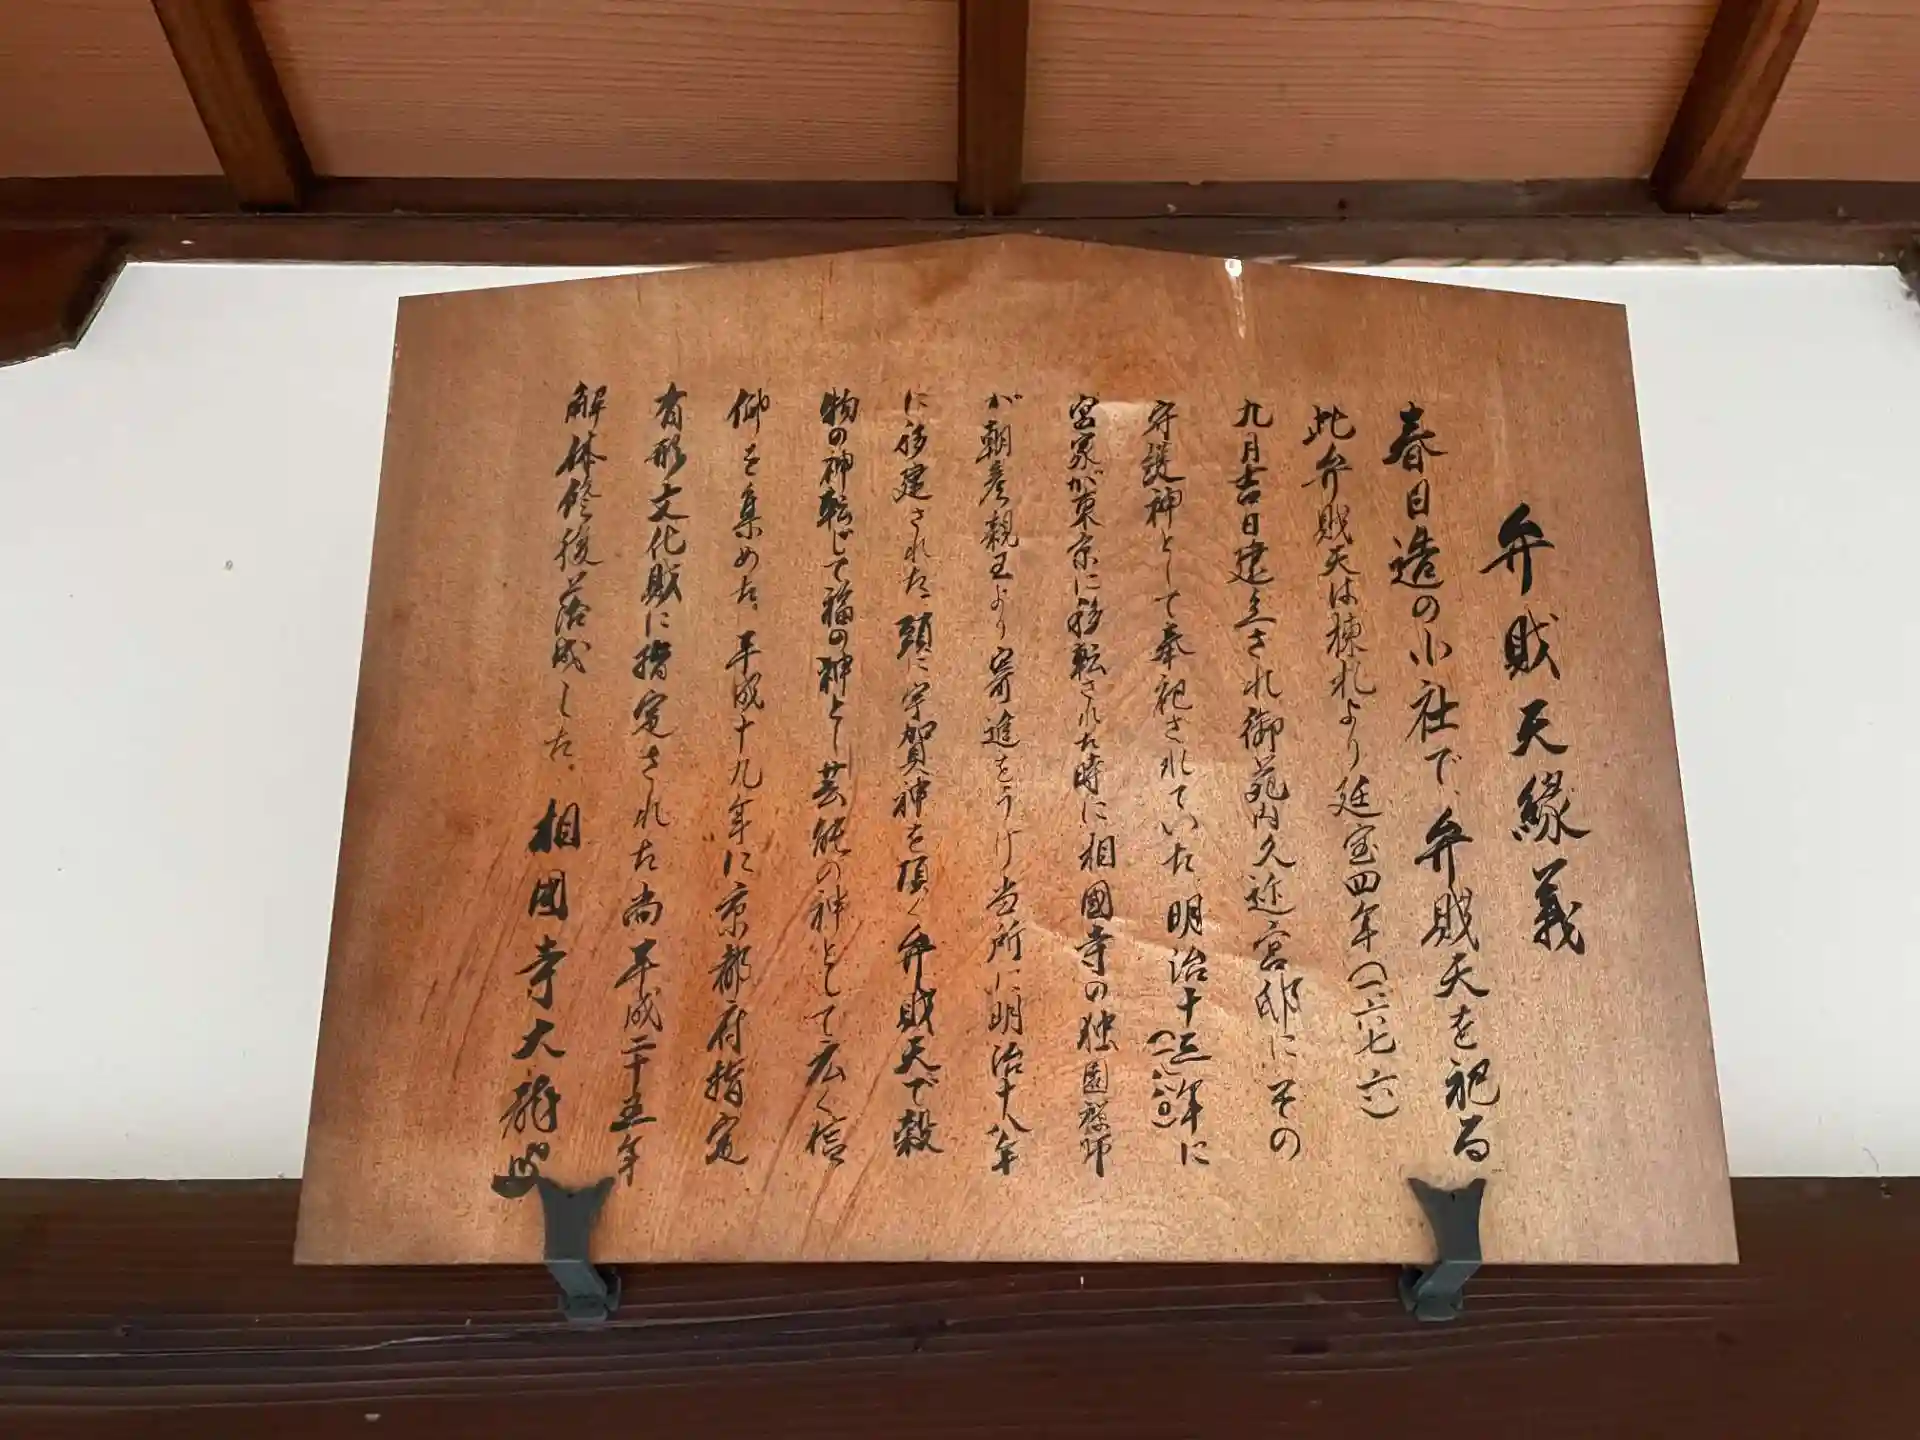 弁財天縁義
春日造の小社で、弁財天を祀る
此弁財天は棟札より延宝四年(一六七六)
九月吉日建立され御苑内久邇宮邸にその
守護神として奉祀されていた 明治十三年に(一八八〇)
宮家が東京に移転された時に相國寺の独園禅師
が朝彦親王より寄進をうけ当所に明治十八年
に移建された、頭に宇賀神を頂く弁財天で穀
物の神転じて福の神とし芸能の神として広く信
仰を集めた。平成十九年に京都府指定
有形文化財に指定された 尚平成二十五年
解体修復落成した。 相國寺大龍